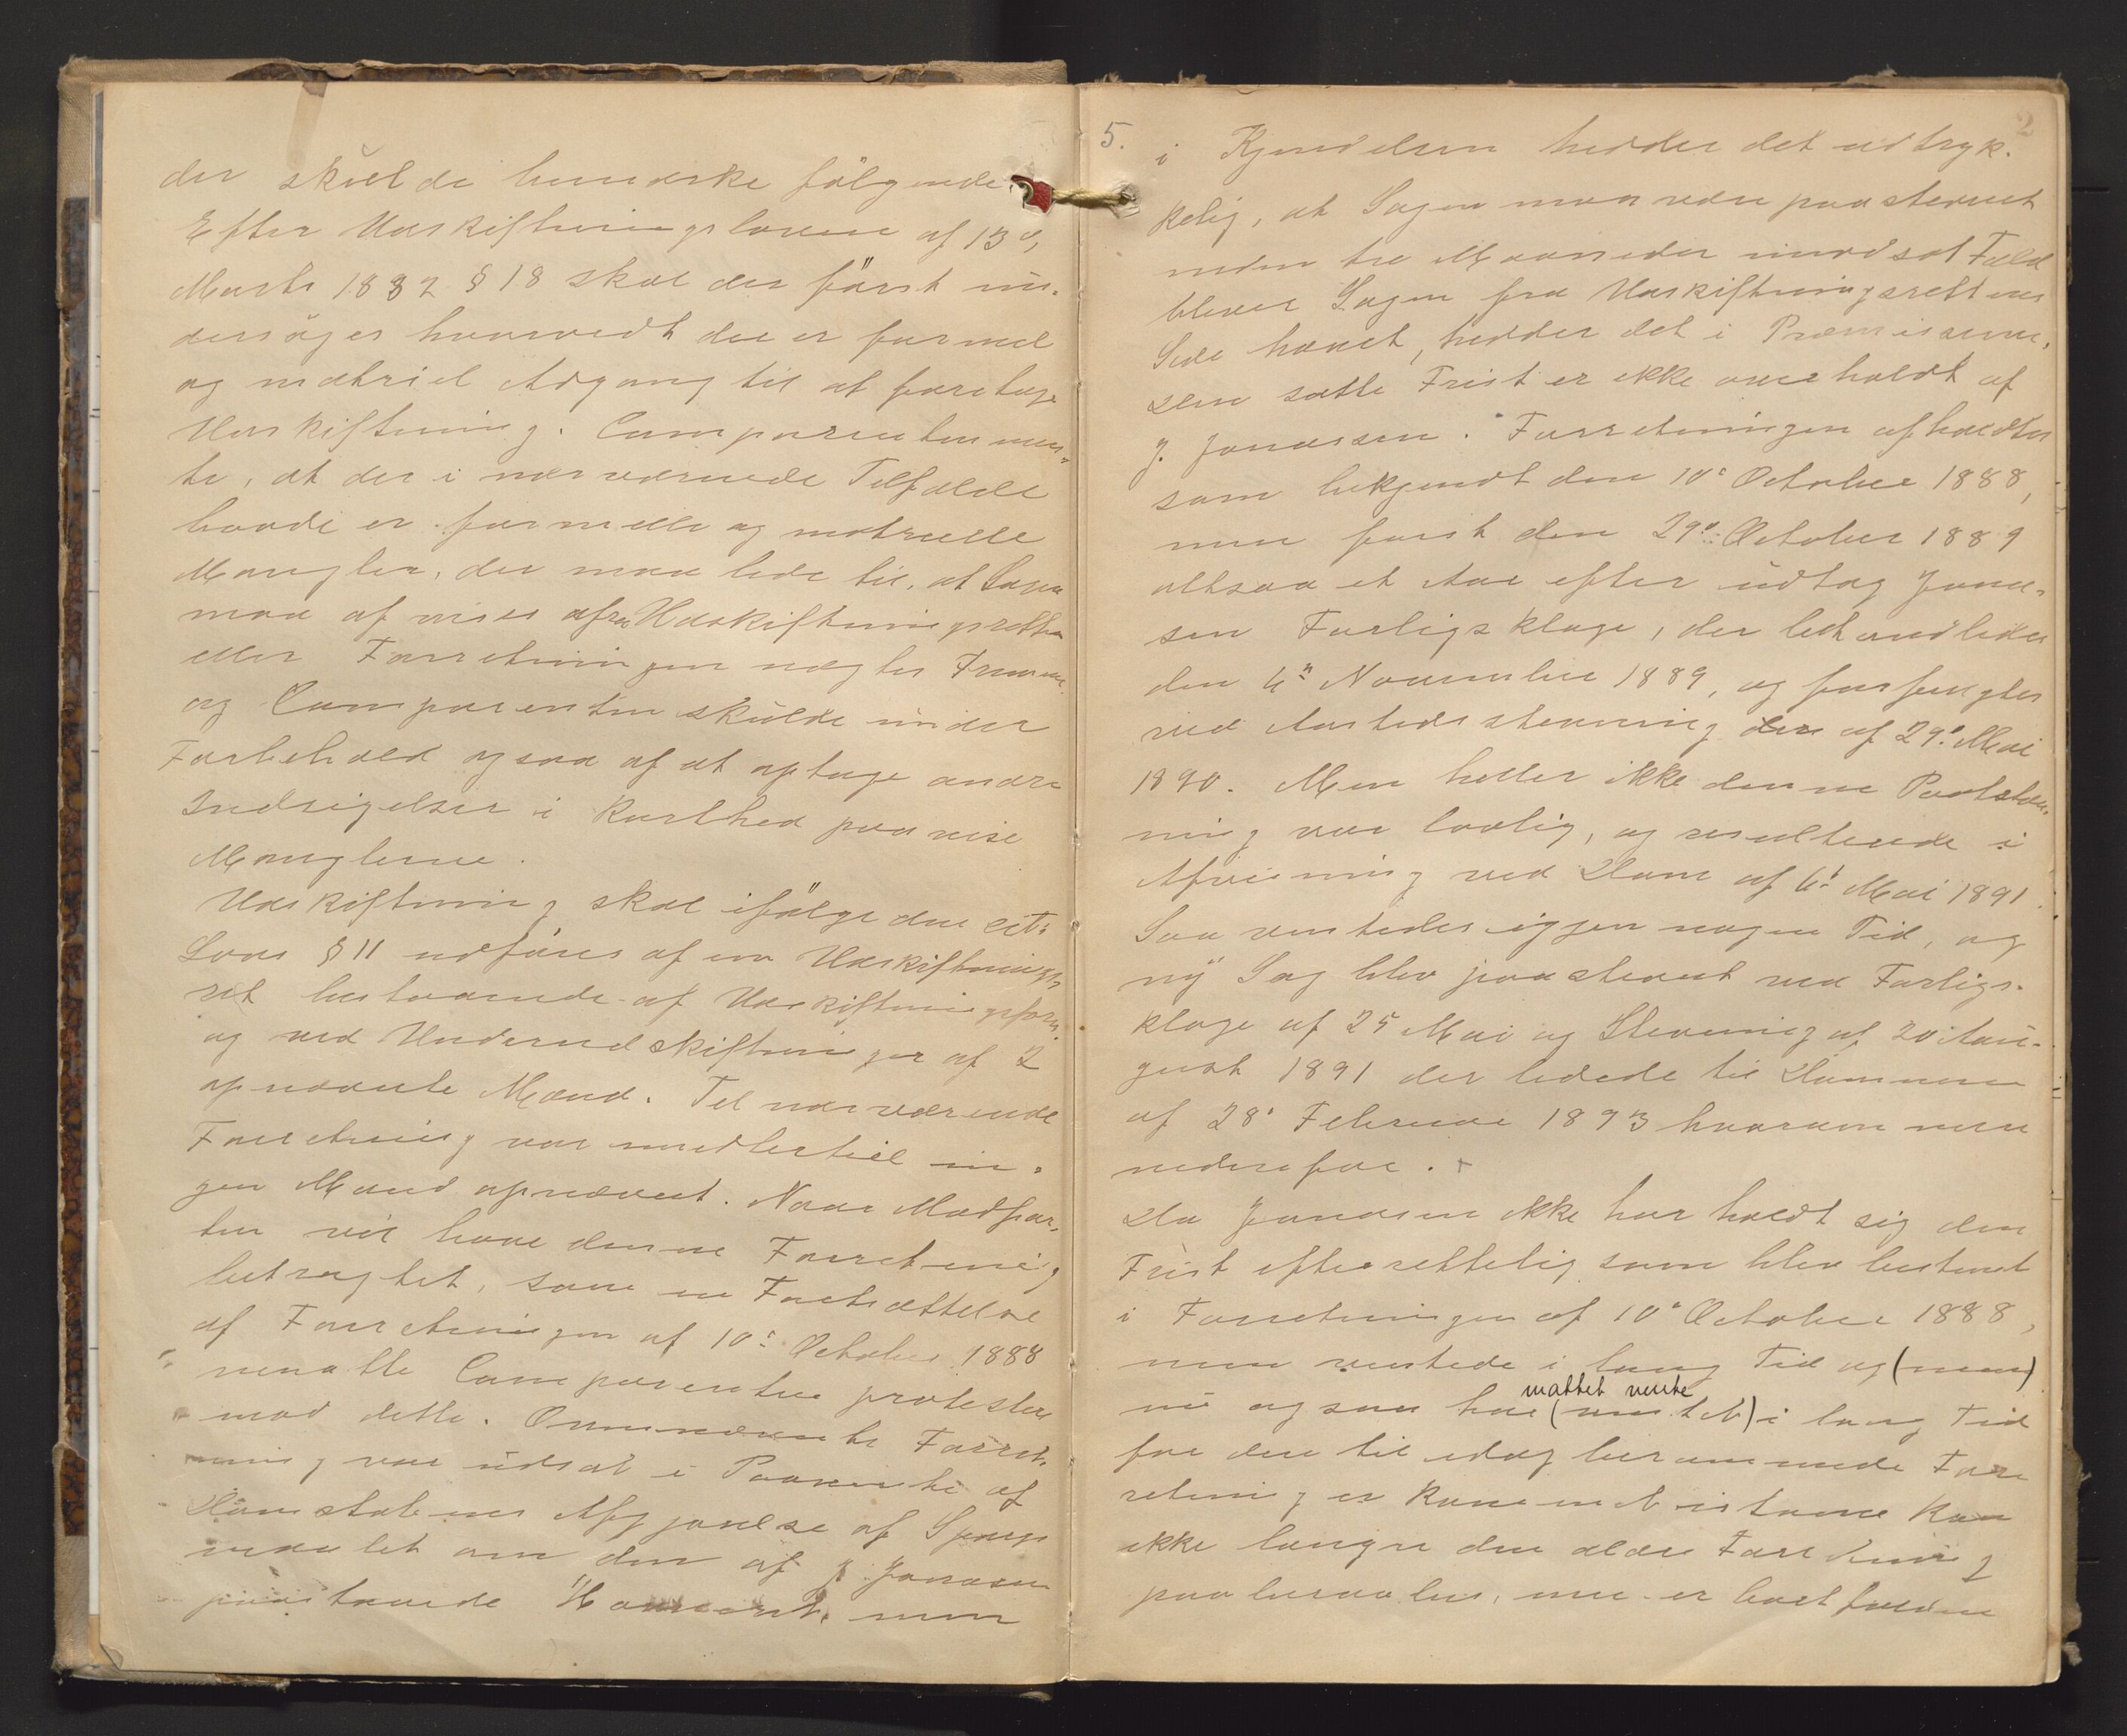 der skulde bemærke følgende.
Efter Udskiftningsloven af 13de
Marts 1882 § 18 skal der først un-
dersøges hvorvidt der er formel
og matriel Adgang til at foretage
Udskiftning. Comparenten men-
te, at der i nærværende Tilfælde
baade er formelle og matrielle
Mangler, der maa lede til, at Sagen
maa afvises fra Udskiftningsretten
eller Forretningen nægtes Fremme
og Comparenten skulde under
Forbehold ogsaa af at optage andre
Indsigelser i Korthed paavise
Manglerne.
Udskiftning skal ifølge den cit.
Lovs § 11 udføres af en Udskiftnings-
ret bestaaende af Udskiftningsform.
og ved Underudskiftninger af 2
opnævnte Mænd. Til nærværende
Forretning var imidlertid in-
gen Mænd opnævnt. Naar Modpar-
ten vil have denne Forretning
betragtet, som en Fortsættelse
af Forretningen af 10de October 1888
maatte Comparenten protestere
mod dette. Omnævnte Forret-
ning var udsat i Paavente af
Domstolenes Afgjørelse af Spørgs-
maalet om den af J. Jonassen
paastaaede Havneret, men
5.
2
i Kjendelsen hedder det udtryk-
kelig, at Sagen maa være paastevnet
inden tre Maaneder modsat Fald
bliver Sagen fra Udskiftningsrettens
Side hævet, hedder det i Præmisserne,
Den satte Frist er ikke overholdt af
J. Jonassen. Forretningen afholdtes
som bekjendt den 10de October 1888,
men først den 29de October 1889
altsaa et Aar efter udtog Jonas-
sen Forligsklage, der behandledes
den 4de November 1889, og forfulgtes
ved Aastedsstevning den af 29de Mai
1890. Men heller ikke denne Paastev-
ning var lovlig, og resulterede i
Afvisning ved Dom af 6te Mai 1891.
Saa ventedes igjen nogen Tid, og
ny Sag blev paastevnt ved Forligs-
klage af 25 Mai og Stevning af 20 Au-
gust 1891 der ledede til Dommen
af 28de Februar 1893 hvorom mere
nedenfor.
Da Jonassen ikke har holdt sig den
Frist efterrettelig som blev bestemt
i Forretningen af 10de October 1888,
men ventede i lang Tid og (men)
nu ogsaa har (ventet) mattet vente i lang Tid
før den til idag berammede For-
retning er kommet istand kan
ikke længere den ældre Forretning
paaberaabes, men er bortfalden